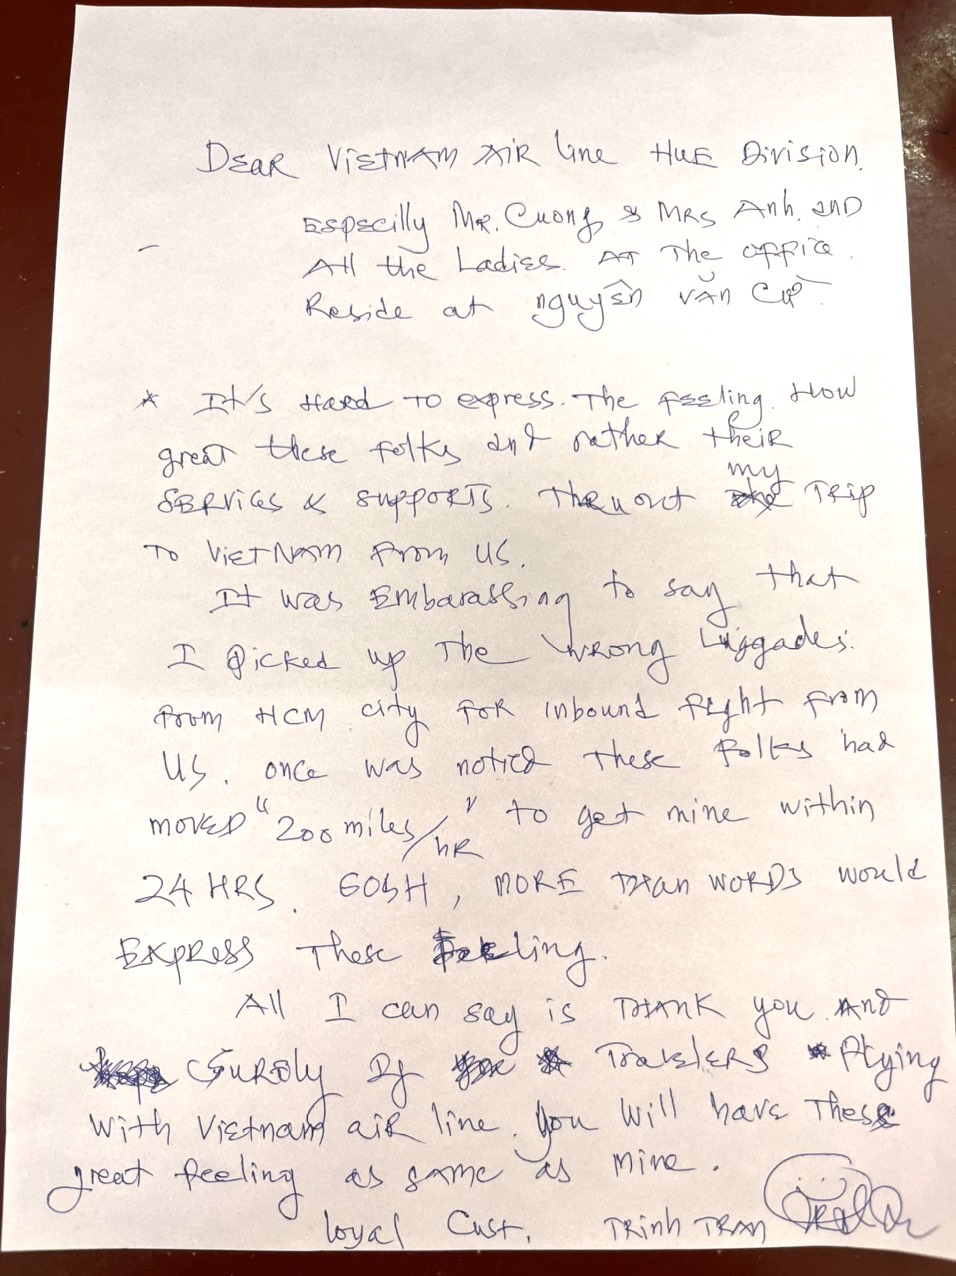 Dear Vietnam Air line Hue Division.
Especilly Mr. Cuong & Mrs Anh. and
All the Ladies. At The office.
Reside at nguyễn văn Cừ.
* It's Hard to express. The feeling. How
great these folks and rather their
services & supports. Thru out my Trip
To VietNam from US.
It was Embarassing to say that
I picked up The wrong Luggades.
from HCM city for inbound flght from
US. once was noticed these folks had
moved "200 miles/hr" to get mine within
24 HRS. GOSH, MORE THan WORDS would
EXPRESS These feeling.
All I can say is THANK you And
Surely If Travelers Flying
with Vietnam air line. you will have These
great feeling as same as mine.
loyal Cust. TRinh TRAN